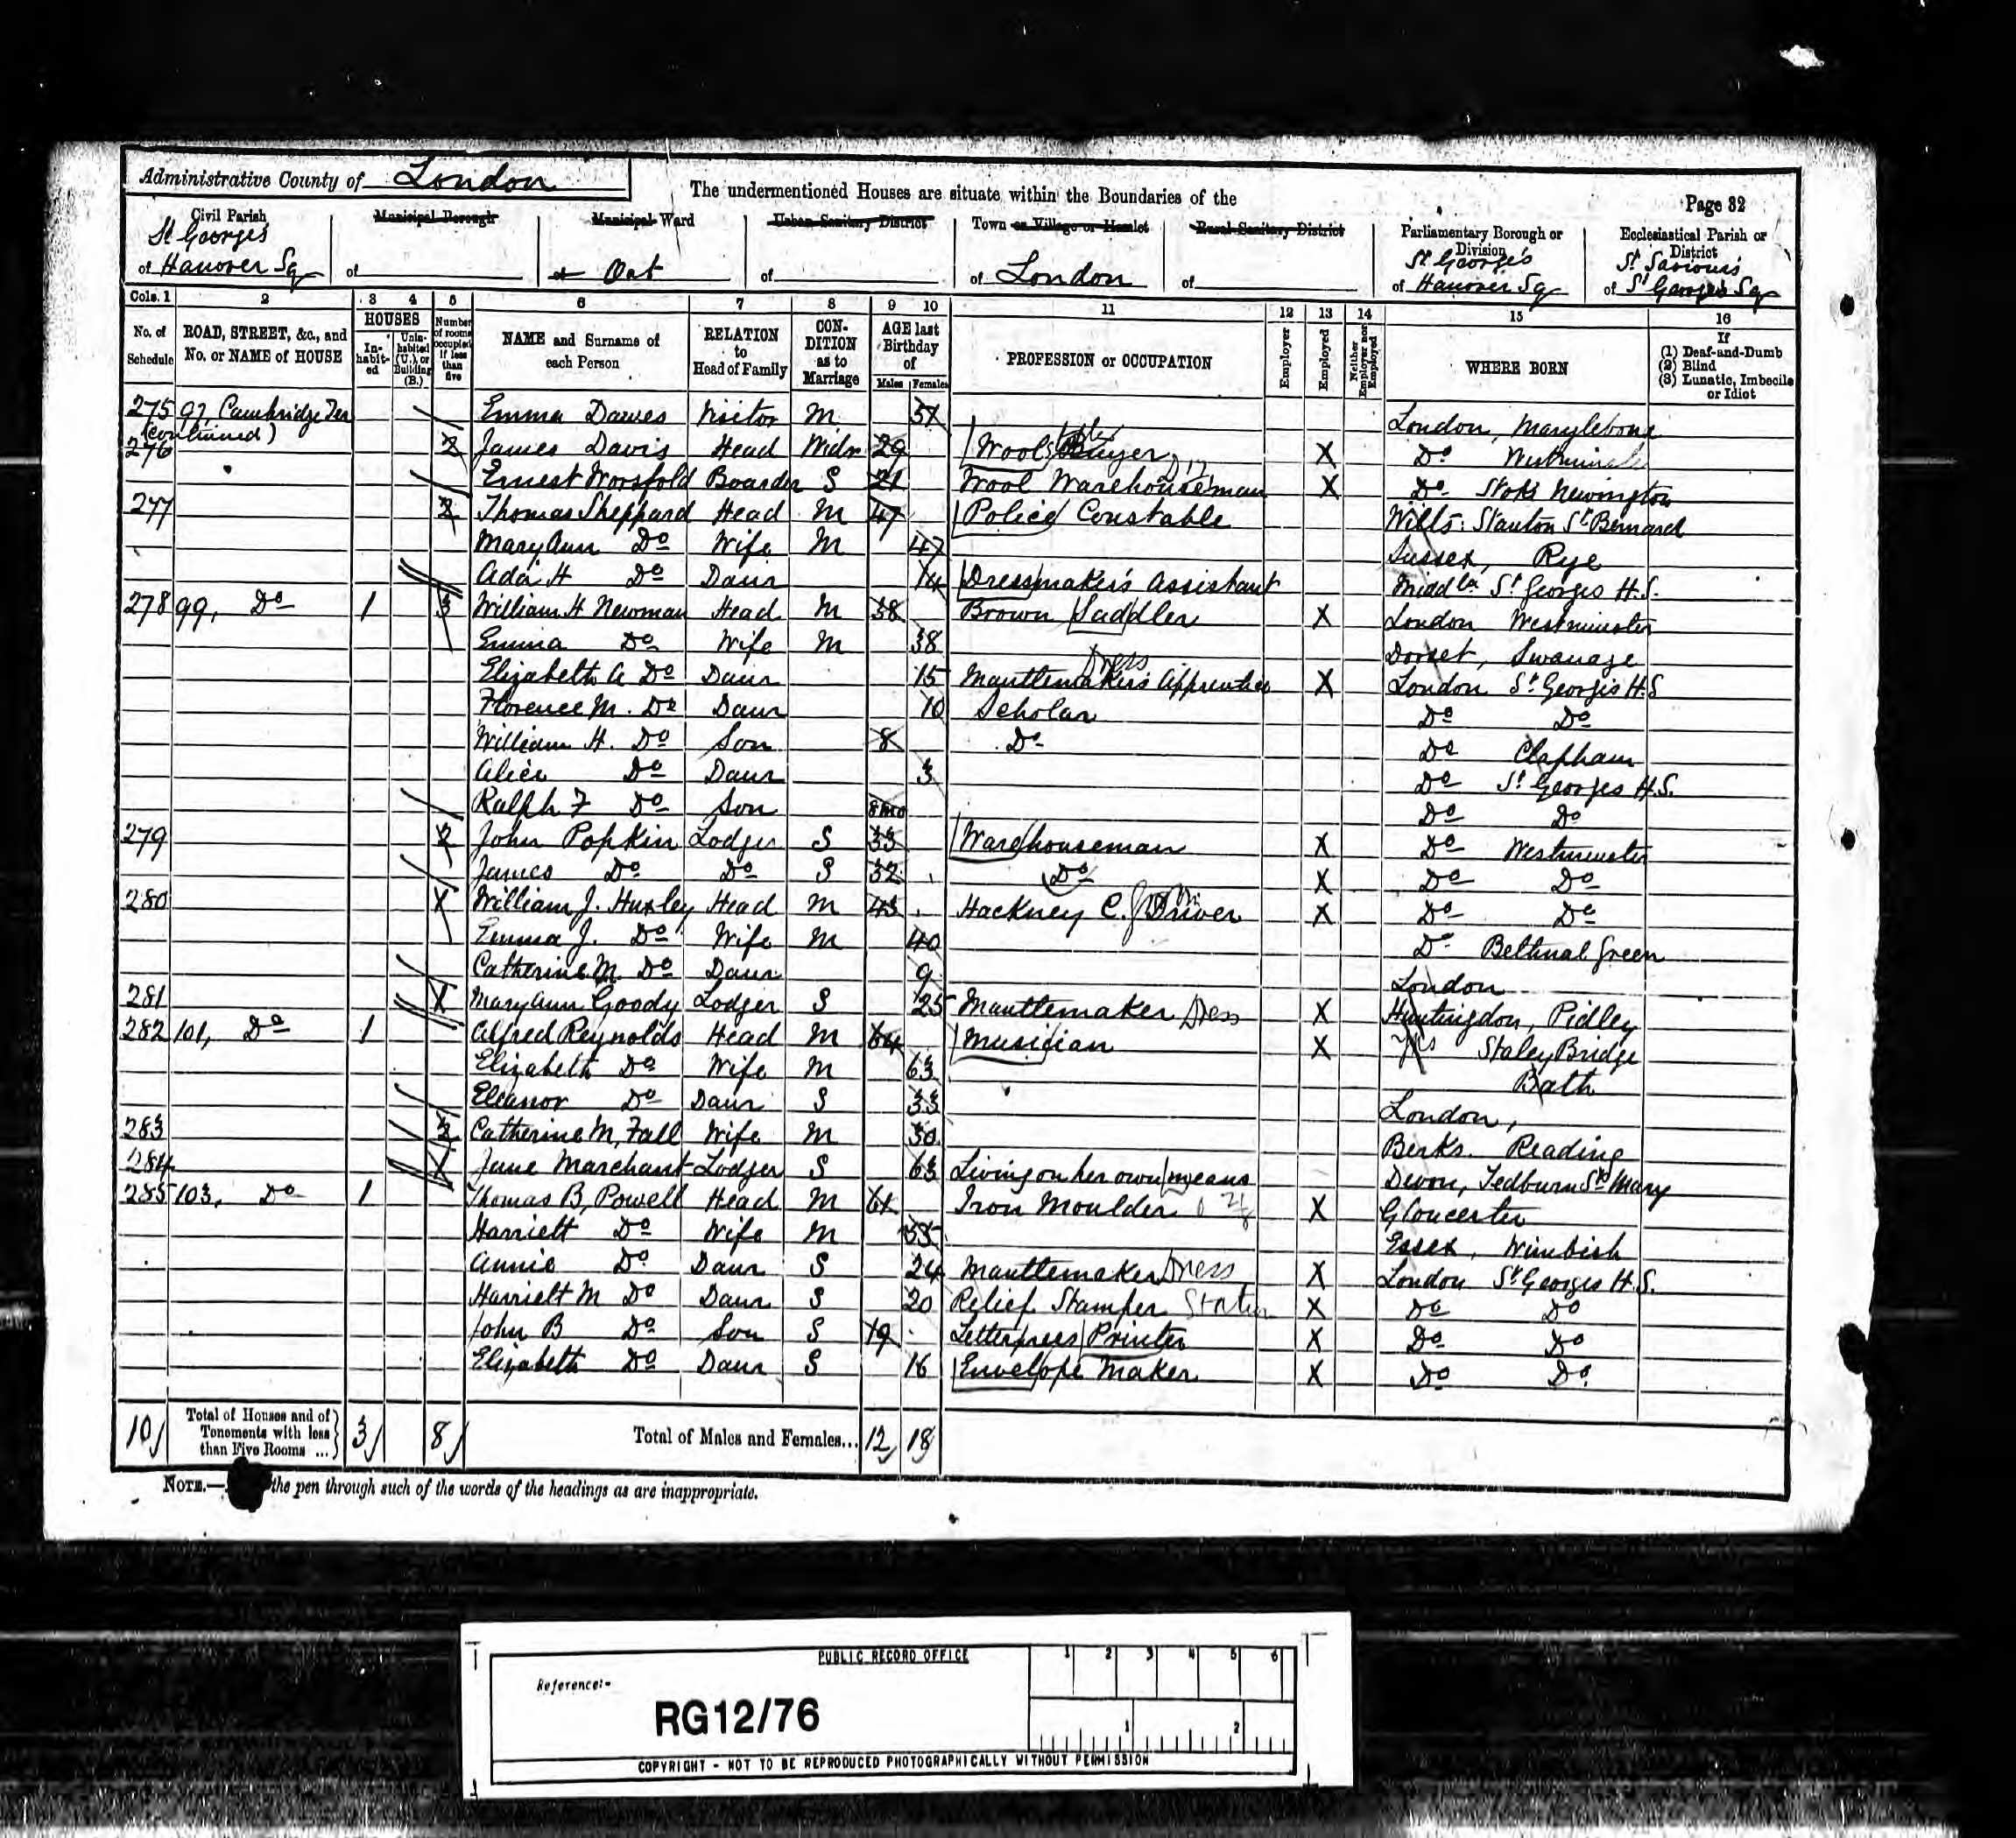 Administrative County of London
The undermentioned Houses are situate within the Boundaries of the
Page 32
Civil Parish
St Georges
of Hanover Sq
Municipal Borough
of
Municipal Ward
of Out
Urban Sanitary District
of
Town or Village or Hamlet
of London
Rural Sanitary District
of
Parliamentary Borough or Division
St George's
of Hanover Sq
Ecclesiastical Parish or District
St Saviours
of St Georges Sq
Cols. 1 2 3 4 5 6 7 8 9 10 11 12 13 14 15 16
No. of Schedule
ROAD, STREET, &c., and No. or NAME of HOUSE
HOUSES
Inhabited
Uninhabited (U.), or Building (B.)
Number of rooms occupied if less than five
NAME and Surname of each Person
RELATION to Head of Family
CONDITION as to Marriage
AGE last Birthday of
Males Females
PROFESSION or OCCUPATION
Employer
Employed
Neither Employer nor Employed
WHERE BORN
If
(1) Deaf-and-Dumb
(2) Blind
(3) Lunatic, Imbecile or Idiot
275 97, Cambridge Ter Emma Dawes Visitor M London, Marylebone
(continued)
276 2 James Davis Head Widr 29 Wool Buyer X Do Westminster
Ernest Worsfold Boarder S 21 Wool Warehouseman X Do Stoke Newington
277 2 Thomas Sheppard Head M 47 Police Constable Wilts: Stanton St Bernard
Mary Ann Do Wife M 47 Sussex, Rye
Ada H Do Daur 14 Dressmaker's Assistant Middlx St Georges H.S.
278 99, Do 1 3 William H Newman Head M 38 Brown Saddler X London Westminster
Emma Do Wife M 38 Dorset, Swanage
Elizabeth A Do Daur 15 Mantlemaker's Apprentice Dress X London St Georges H.S
Florence M. Do Daur 10 Scholar Do Do
William H. Do Son 8 Do Do Clapham
Alice Do Daur 3 Do St Georges H.S.
Ralph F Do Son 8mo Do Do
279 2 John Popkin Lodger S 33 Warehouseman X Do Westminster
James Do Do S 32 Do X Do Do
280 William J. Huxley Head M 43 Hackney C. Driver X Do Do
Emma J. Do Wife M 40 Do Bethnal Green
Catherine M. Do Daur 9 London
281 Mary Ann Goody Lodger S 25 Mantlemaker Dress X Huntingdon, Pidley
282 101, Do 1 Alfred Reynolds Head M 64 Musician X Staley Bridge
Elizabeth Do Wife M 63 Bath
Eleanor Do Daur S 33 London,
283 2 Catherine M. Fall Wife M 30 Berks. Reading
284 Jane Marchant Lodger S 63 Living on her own means Devon, Tedburn St Mary
285 103, Do 1 Thomas B. Powell Head M 61 Iron Moulder X Gloucester
Harriett Do Wife M 55 Essex, Wimbish
Annie Do Daur S 24 Mantlemaker Dress X London St Georges H.S.
Harriett M Do Daur S 20 Relief Stamper X Do Do
John B Do Son S 19 Letterpress Printer X Do Do
Elizabeth Do Daur S 16 Envelope Maker X Do Do
10 Total of Houses and of Tenements with less than Five Rooms ... 3 8 Total of Males and Females... 12 18
NOTE.— the pen through such of the words of the headings as are inappropriate.
PUBLIC RECORD OFFICE
1 2 3 4 5 6
Reference:-
RG12/76
1 2
COPYRIGHT - NOT TO BE REPRODUCED PHOTOGRAPHICALLY WITHOUT PERMISSION